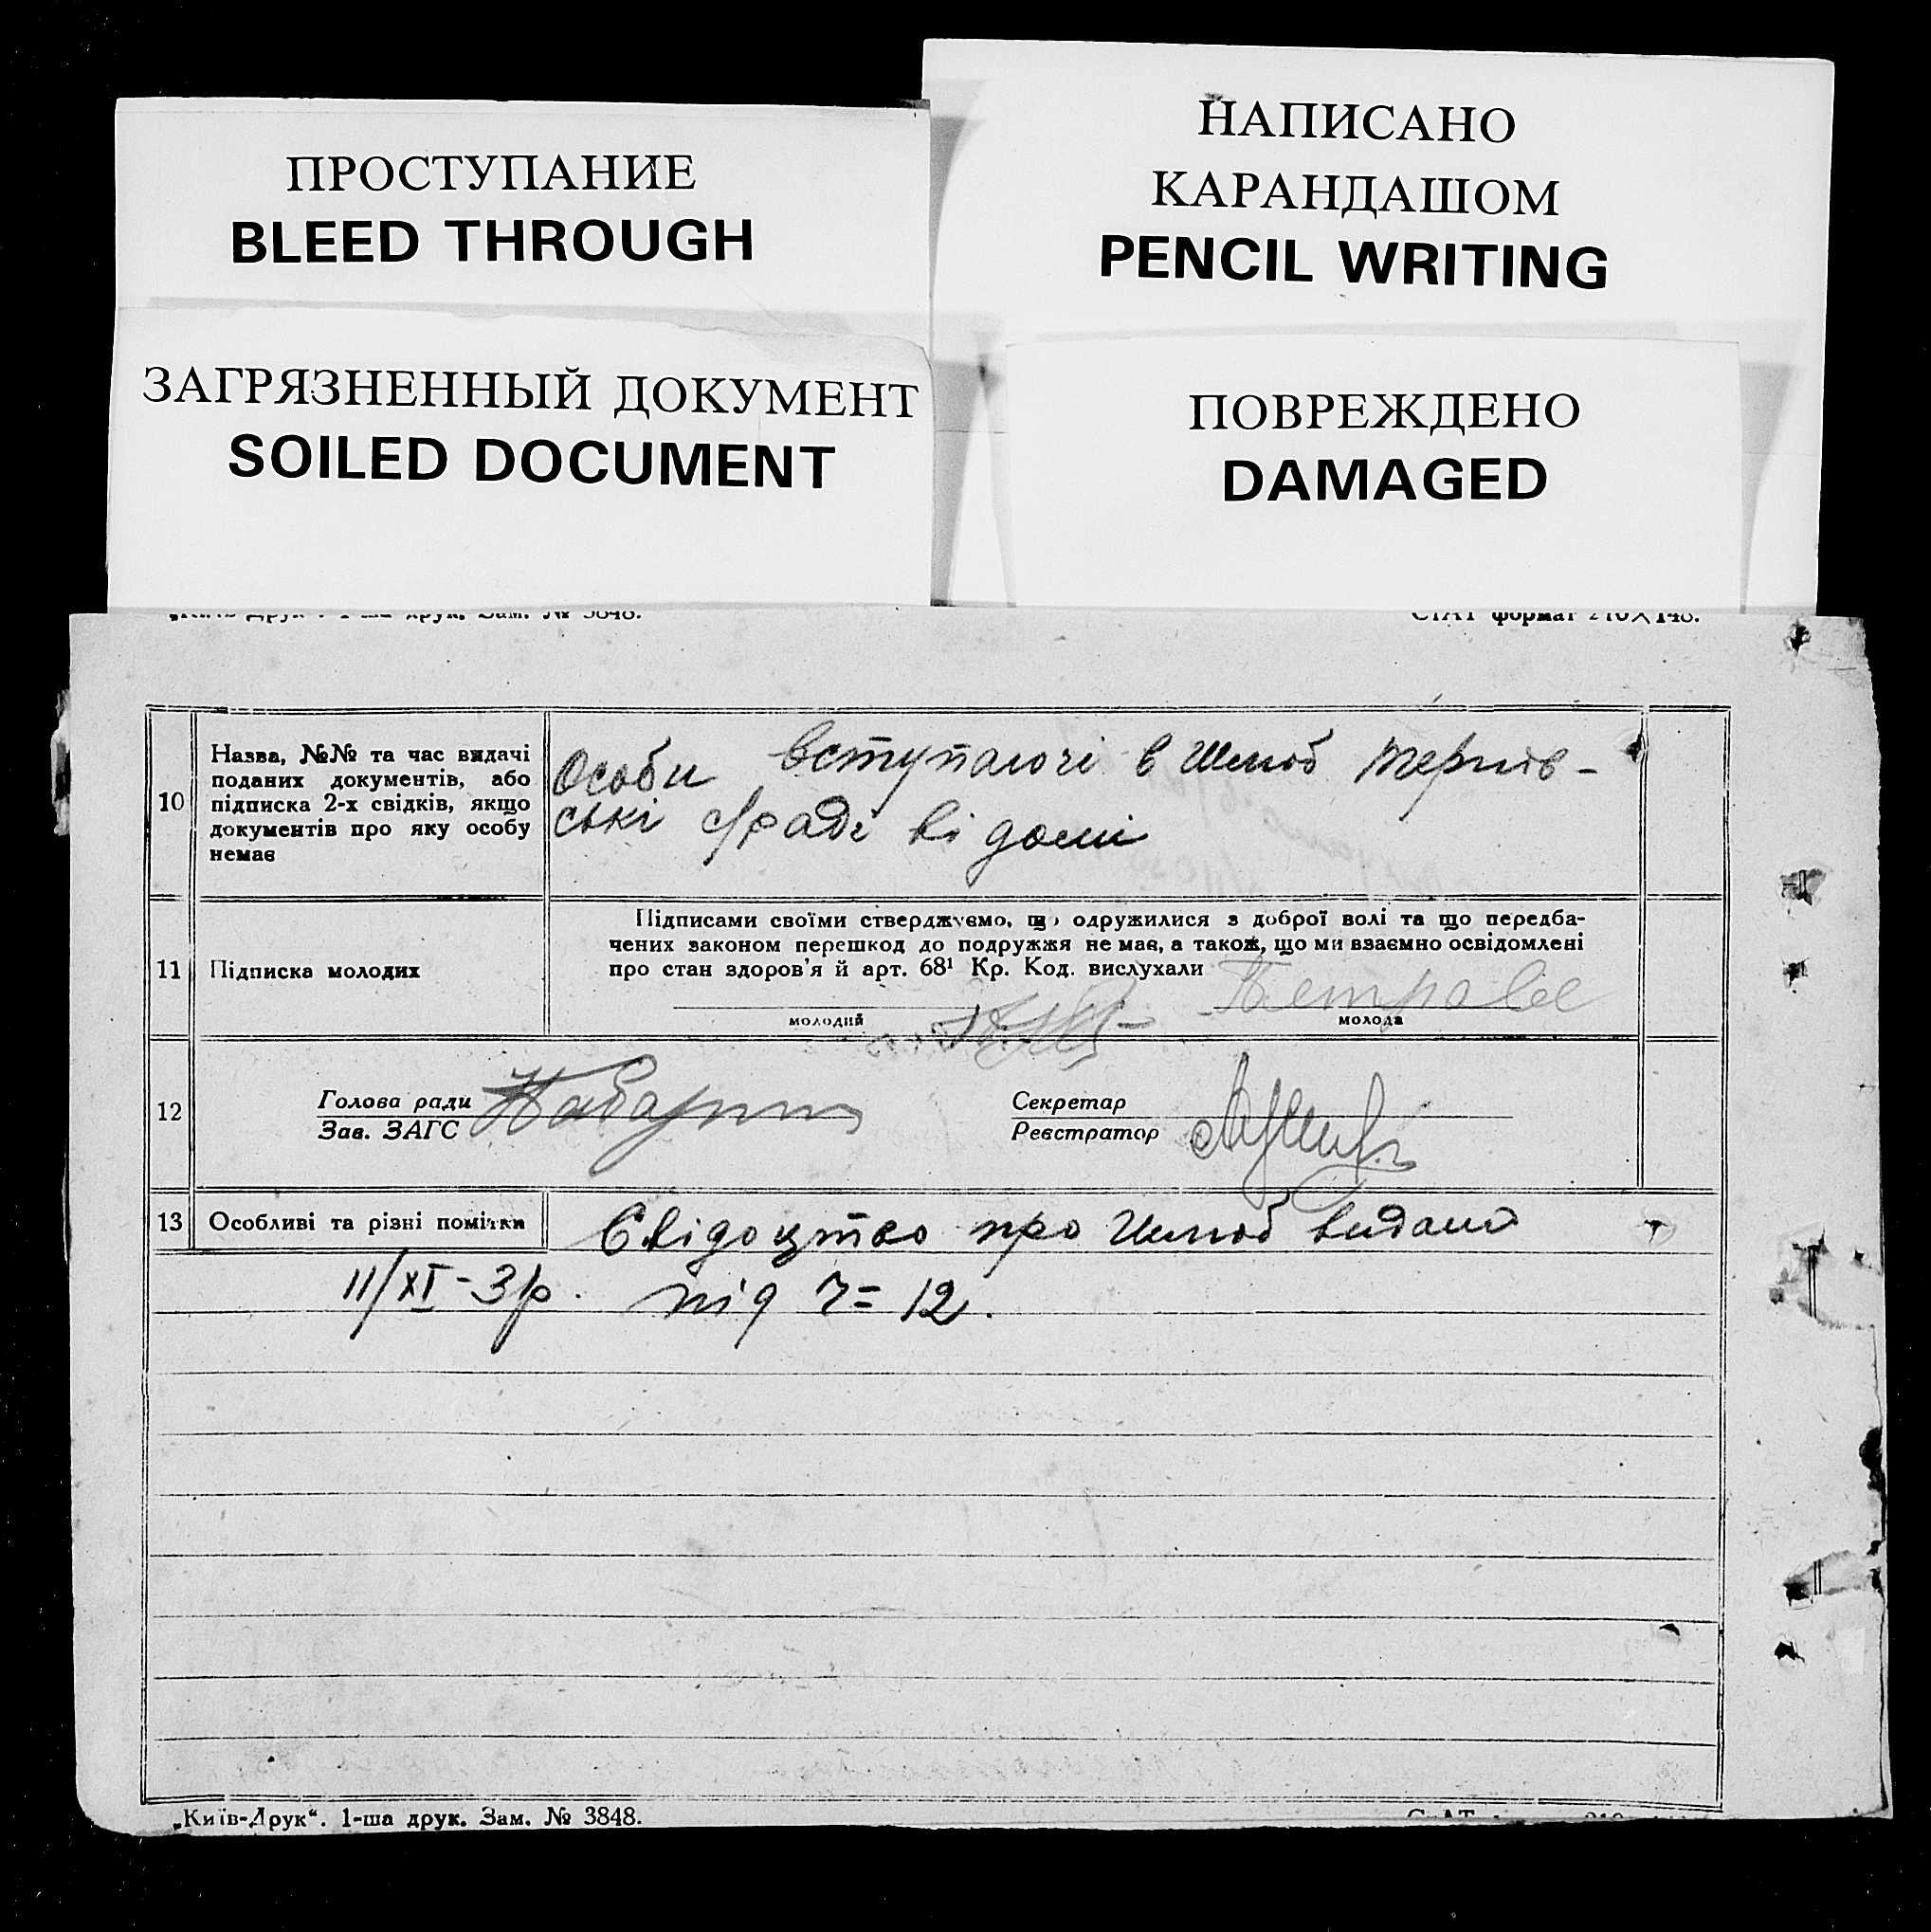 НАПИСАНО
КАРАНДАШОМ
PENCIL WRITING
ПРОСТУПАНИЕ
BLEED THROUGH
ЗАГРЯЗНЕННЫЙ ДОКУМЕНТ
SOILED DOCUMENT
ПОВРЕЖДЕНО
DAMAGED
1-ша друк. Зам. № 3848.
формат 210×148.
10
Назва, №№ та час видачі
поданих документів, або
підписка 2-х свідків, якщо
документів про яку особу
немає
Особи вступаючі в шлюб
ські с/раді відомі
11
Підписка молодих
Підписами своїми стверджуємо, що одружилися з доброї волі та що передба-
чених законом перешкод до подружжя не має, а також, що ми взаємно освідомлені
про стан здоров'я й арт. 68¹ Кр. Код. вислухали
молодий
молода
12
Голова ради
Зав. ЗАГС
Секретар
Реєстратор
13
Особливі та різні помітки
Свідоцтво про шлюб видано
11/XI-3р. під ч= 12.
„Київ-Друк“. 1-ша друк. Зам. № 3848.